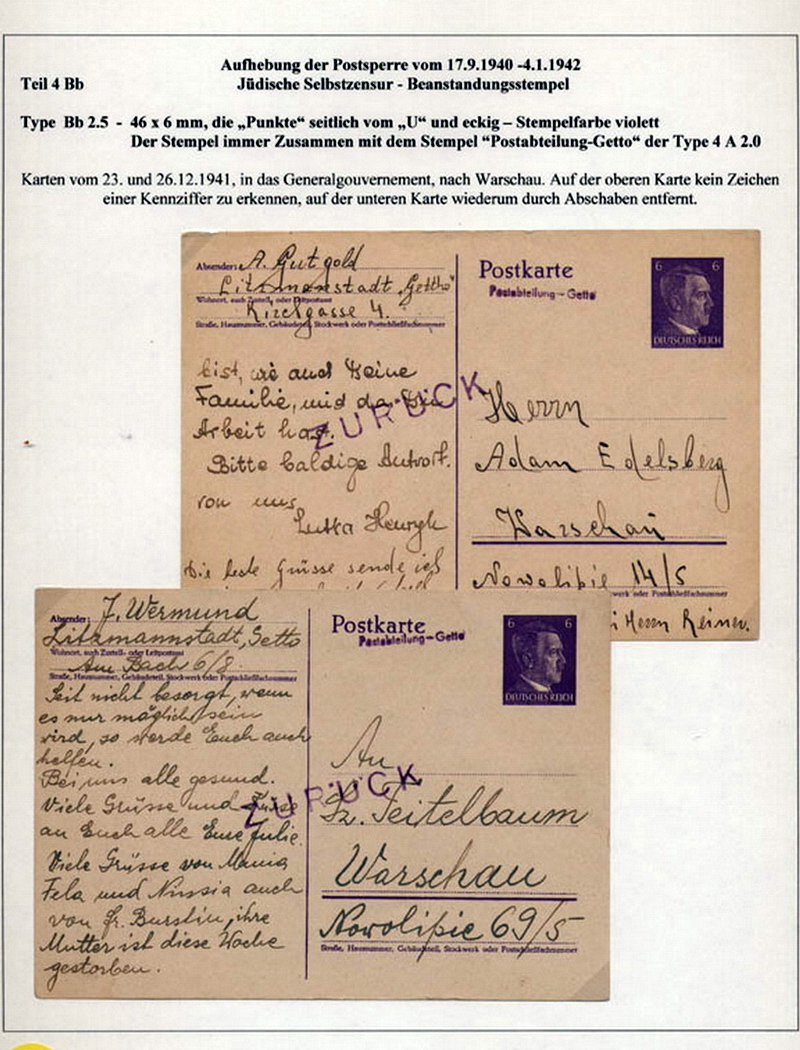 Aufhebung der Postsperre vom 17.9.1940 -4.1.1942
Teil 4 Bb
Jüdische Selbstzensur - Beanstandungsstempel
Type Bb 2.5 - 46 x 6 mm, die „Punkte“ seitlich vom „U“ und eckig – Stempelfarbe violett
Der Stempel immer Zusammen mit dem Stempel “Postabteilung-Getto“ der Type 4 A 2.0
Karten vom 23. und 26.12.1941, in das Generalgouvernement, nach Warschau. Auf der oberen Karte kein Zeichen
einer Kennziffer zu erkennen, auf der unteren Karte wiederum durch Abschaben entfernt.
Absender: A. Gutgold
Litzmannstadt „Getto“
Wohnort, auch Zustell- oder Leitpostamt
Kirchgasse 4.
Straße, Hausnummer, Gebäudeteil, Stockwerk oder Postschließfachnummer
bist, wie auch Deine
Familie, und da Du
Arbeit hast.
Bitte baldige Antwort.
von uns
Lutka Henryk
Die beste Grüsse sende ich
ZURÜCK
Postkarte
Postabteilung-Getto
6 6
DEUTSCHES REICH
Herrn
Adam Edelsberg
Warschau
Nowolipie 14/5
werk oder Postschließfachnummer
Herrn Reiner.
Absender: J. Wermund
Litzmannstadt, Getto
Wohnort, auch Zustell- oder Leitpostamt
Am Bach 6/8
Straße, Hausnummer, Gebäudeteil, Stockwerk oder Postschließfachnummer
Seit nicht besorgt, wenn
es nur möglich sein
wird, so werde Euch auch
helfen.
Bei uns alle gesund.
Viele Grüsse und Küsse
an Euch alle Eure Julie.
Viele Grüsse von Mania
Fela und Nusia auch
von Fr. Burstin, ihre
Mutter ist diese Woche
gestorben.
ZURÜCK
Postkarte
Postabteilung-Getto
6 6
DEUTSCHES REICH
An
Sz. Teitelbaum
Warschau
Nowolipie 69/5
Straße, Hausnummer, Gebäudeteil, Stockwerk oder Postschließfachnummer